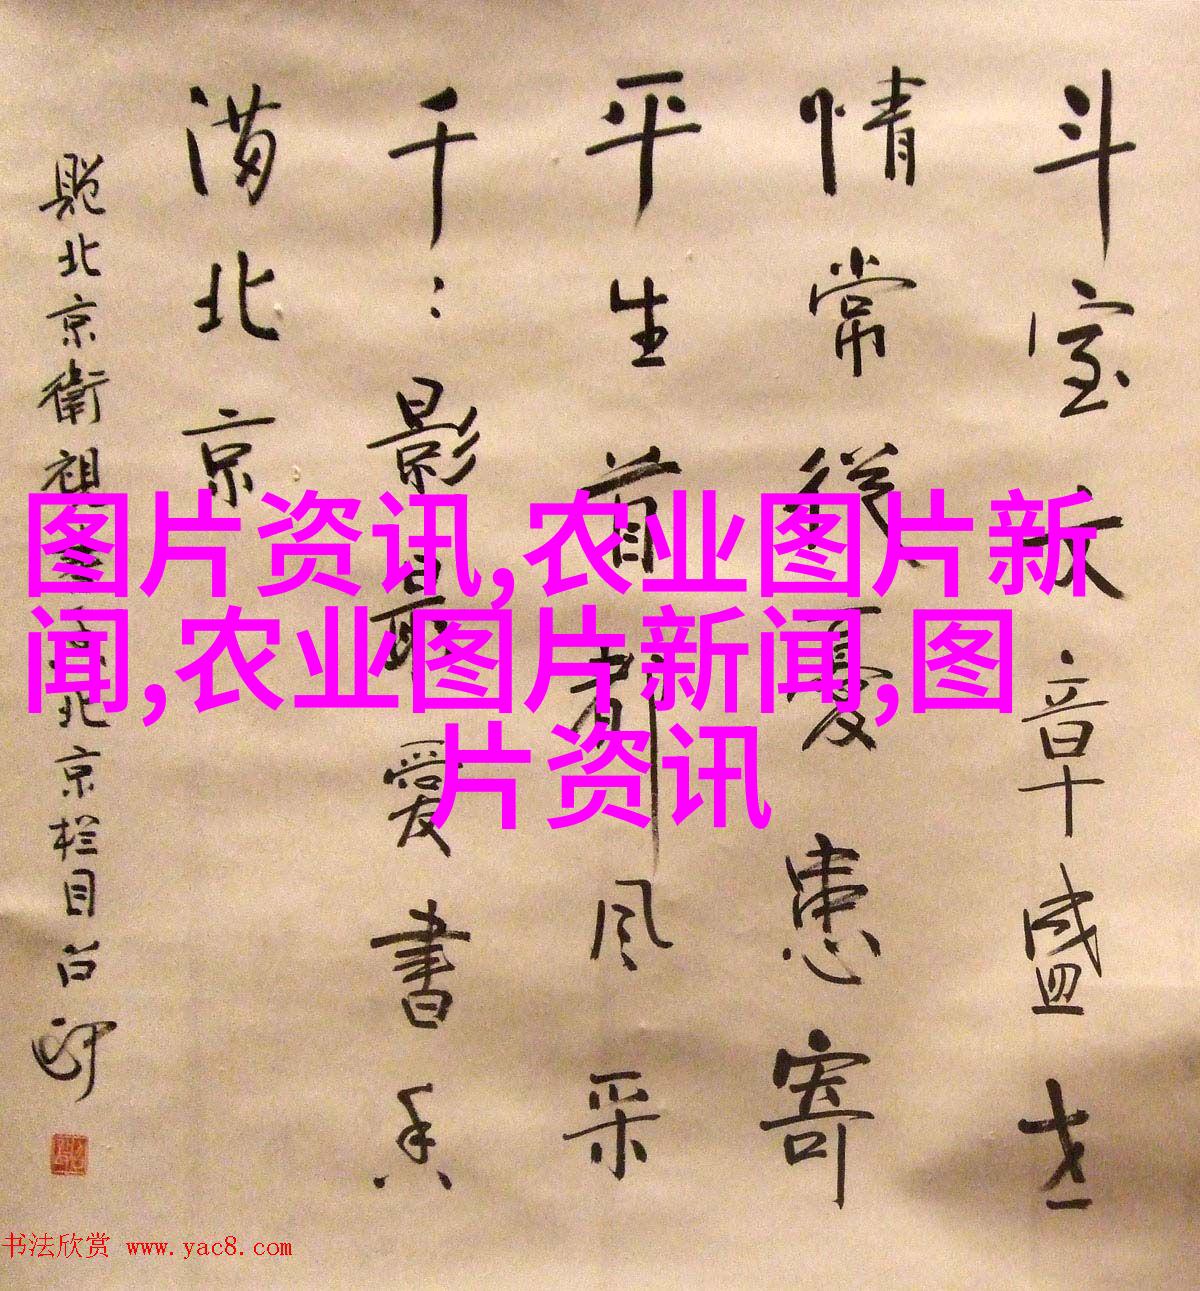 斗室文章盛世
情常從憂患寄
平生首肅風采
千:影最愛書香
满北京
题北京衛視
北京栏目台
图片资讯,农业图片新
闻,农业图片新闻,图
片资讯
书法欣赏 www.yac8.com